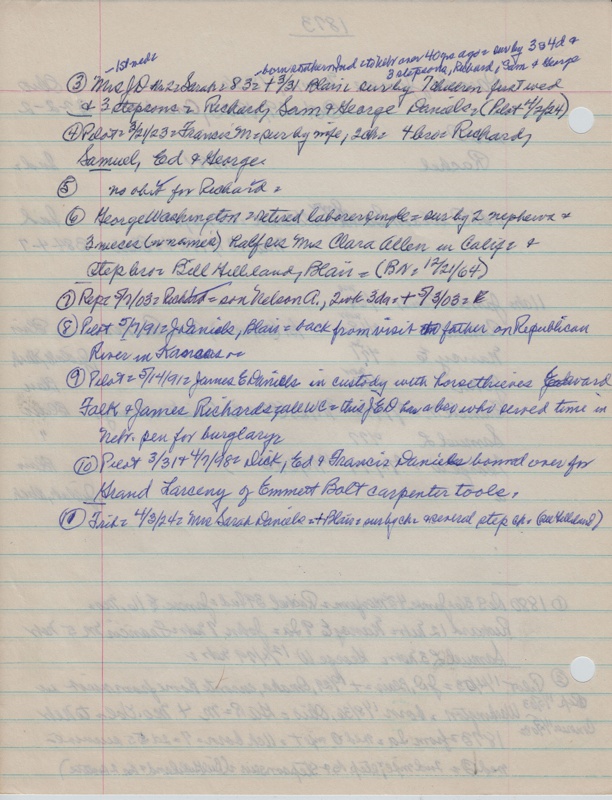 1873
-1st wed=
born southern Ind. to Nebr over 40 yrs ago = sur by 3s 4d &
3 stepsons, Richard, Sam & George
③ Mrs JD No.2 = Sarah = 83 = + 3/31 Blair; sur by 7 children first wed
& 3 stepsons = Richard, Sam & George Daniels = (Pilot 4/2/24)
④ Pilot = 3/21/23 = Francis M = sur by wife, 2ch = 4 bro = Richard,
Samuel, Ed & George.
⑤ no obit for Richard =
⑥ George Washington = retired laborer single = sur by 2 nephews &
3 nieces (no names) half sis Mrs Clara Allen in Calif = &
step bro = Bill Hilland, Blair = (BN = 12/21/64)
⑦ Rep = 5/7/03 = = son Nelson A., 2 3da = + 5/3/03 =
⑧ Pilot 5/7/91 = J Daniels, Blair = back from visit father on Republican
River in Kansas =
⑨ Pilot = 5/14/91 = James E Daniels in custody with horsethieves Edward
Falk & James Richards, all WC = this JED has a bro who served time in
Nebr. pen for burglary =
⑩ Pilot 3/31 & 4/7/98 = Dick, Ed & Francis Daniels bound over for
Grand Larceny of Emmett Bolt carpenter tools.
⑪ Trib = 4/3/24 = Mrs Sarah Daniels = + Blair = sur by ch = & several step ch = (see Hilland)